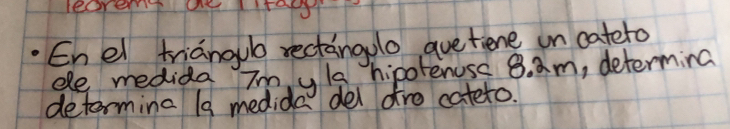 Teorema de Pitág
• En el triángulo rectángulo que tiene un cateto
de medida 7m y la hipotenusa 8.2m, determina
determina la medida del otro cateto.